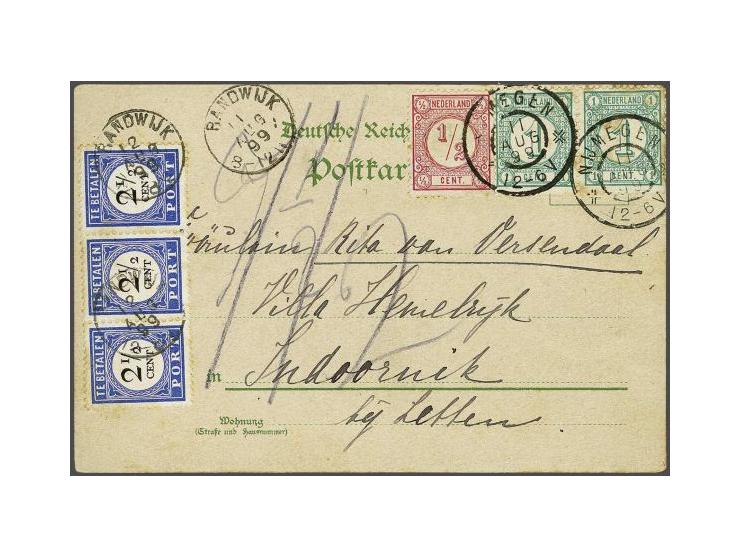 RANDWIJK
11 AUG 99
8-12V
Deutsche Reich
Postkar
½ NEDERLAND ½
1/2
½ CENT. ½
NIJMEGEN
11 AUG 99
12-6V
1 NEDERLAND 1
1
1 CENT. 1
NIJMEGEN
12-6V
RANDWIJK
TE BETALEN
2½ CENT
PORT
TE BETALEN
2½ CENT
PORT
TE BETALEN
2½ CENT
PORT
Fräulein Rita van Oersendaal
Villa Hemelrijk
in Indoornik
bij Zetten
Wohnung
(Straße und Hausnummer)